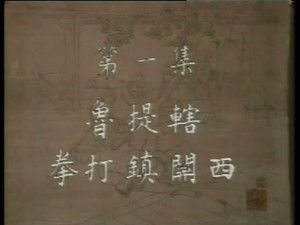 第一集
魯提轄
拳打鎮關西